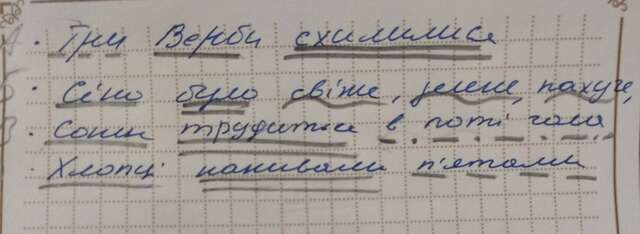 А. Три Верби схилилися
Б. Сіно було свіже, зелене, пахуче,
В. трудитися в поті чола
. Хлопці накивали п'ятами